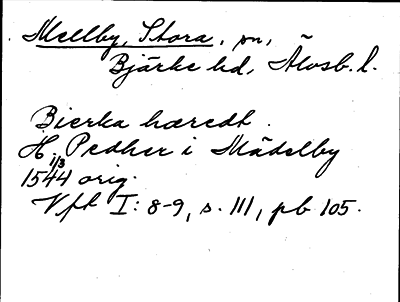 Mellby, Stora, sn,
Bjärke hd, Älvsb. l.
Bierka hæredt.
H. Pedher i Mädelby
1544 1/3 orig.
Vft I: 8-9, s. 111, pb 105.